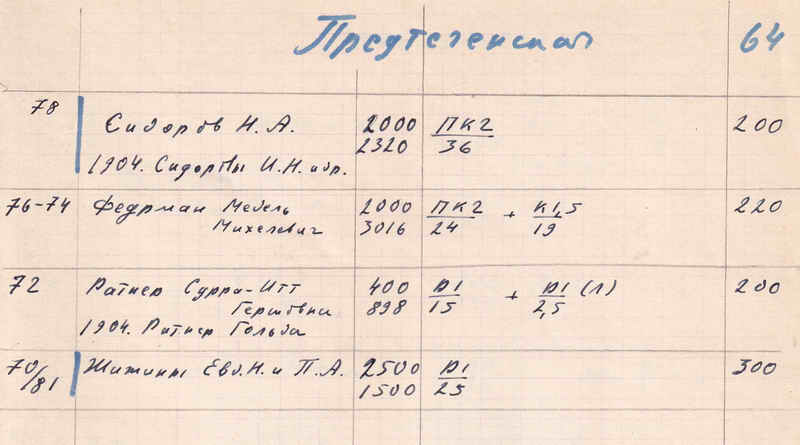 Предтеченская 64
78
Сидоров Н. А. 2000 ПК2 200
2320 36
1904. Сидоровы И. Н. идр.
76-74 Федрман Мебель 2000 ПК2 + К1,5 220
Михелевич 3016 24 19
72 Ратнер Сурра-Итт 400 Д1 + Д1 (Л) 200
Гершовна 898 15 2,5
1904. Ратнер Гольда
70/81 Евд. Н. и П. А. 2500 Д1 300
1500 25